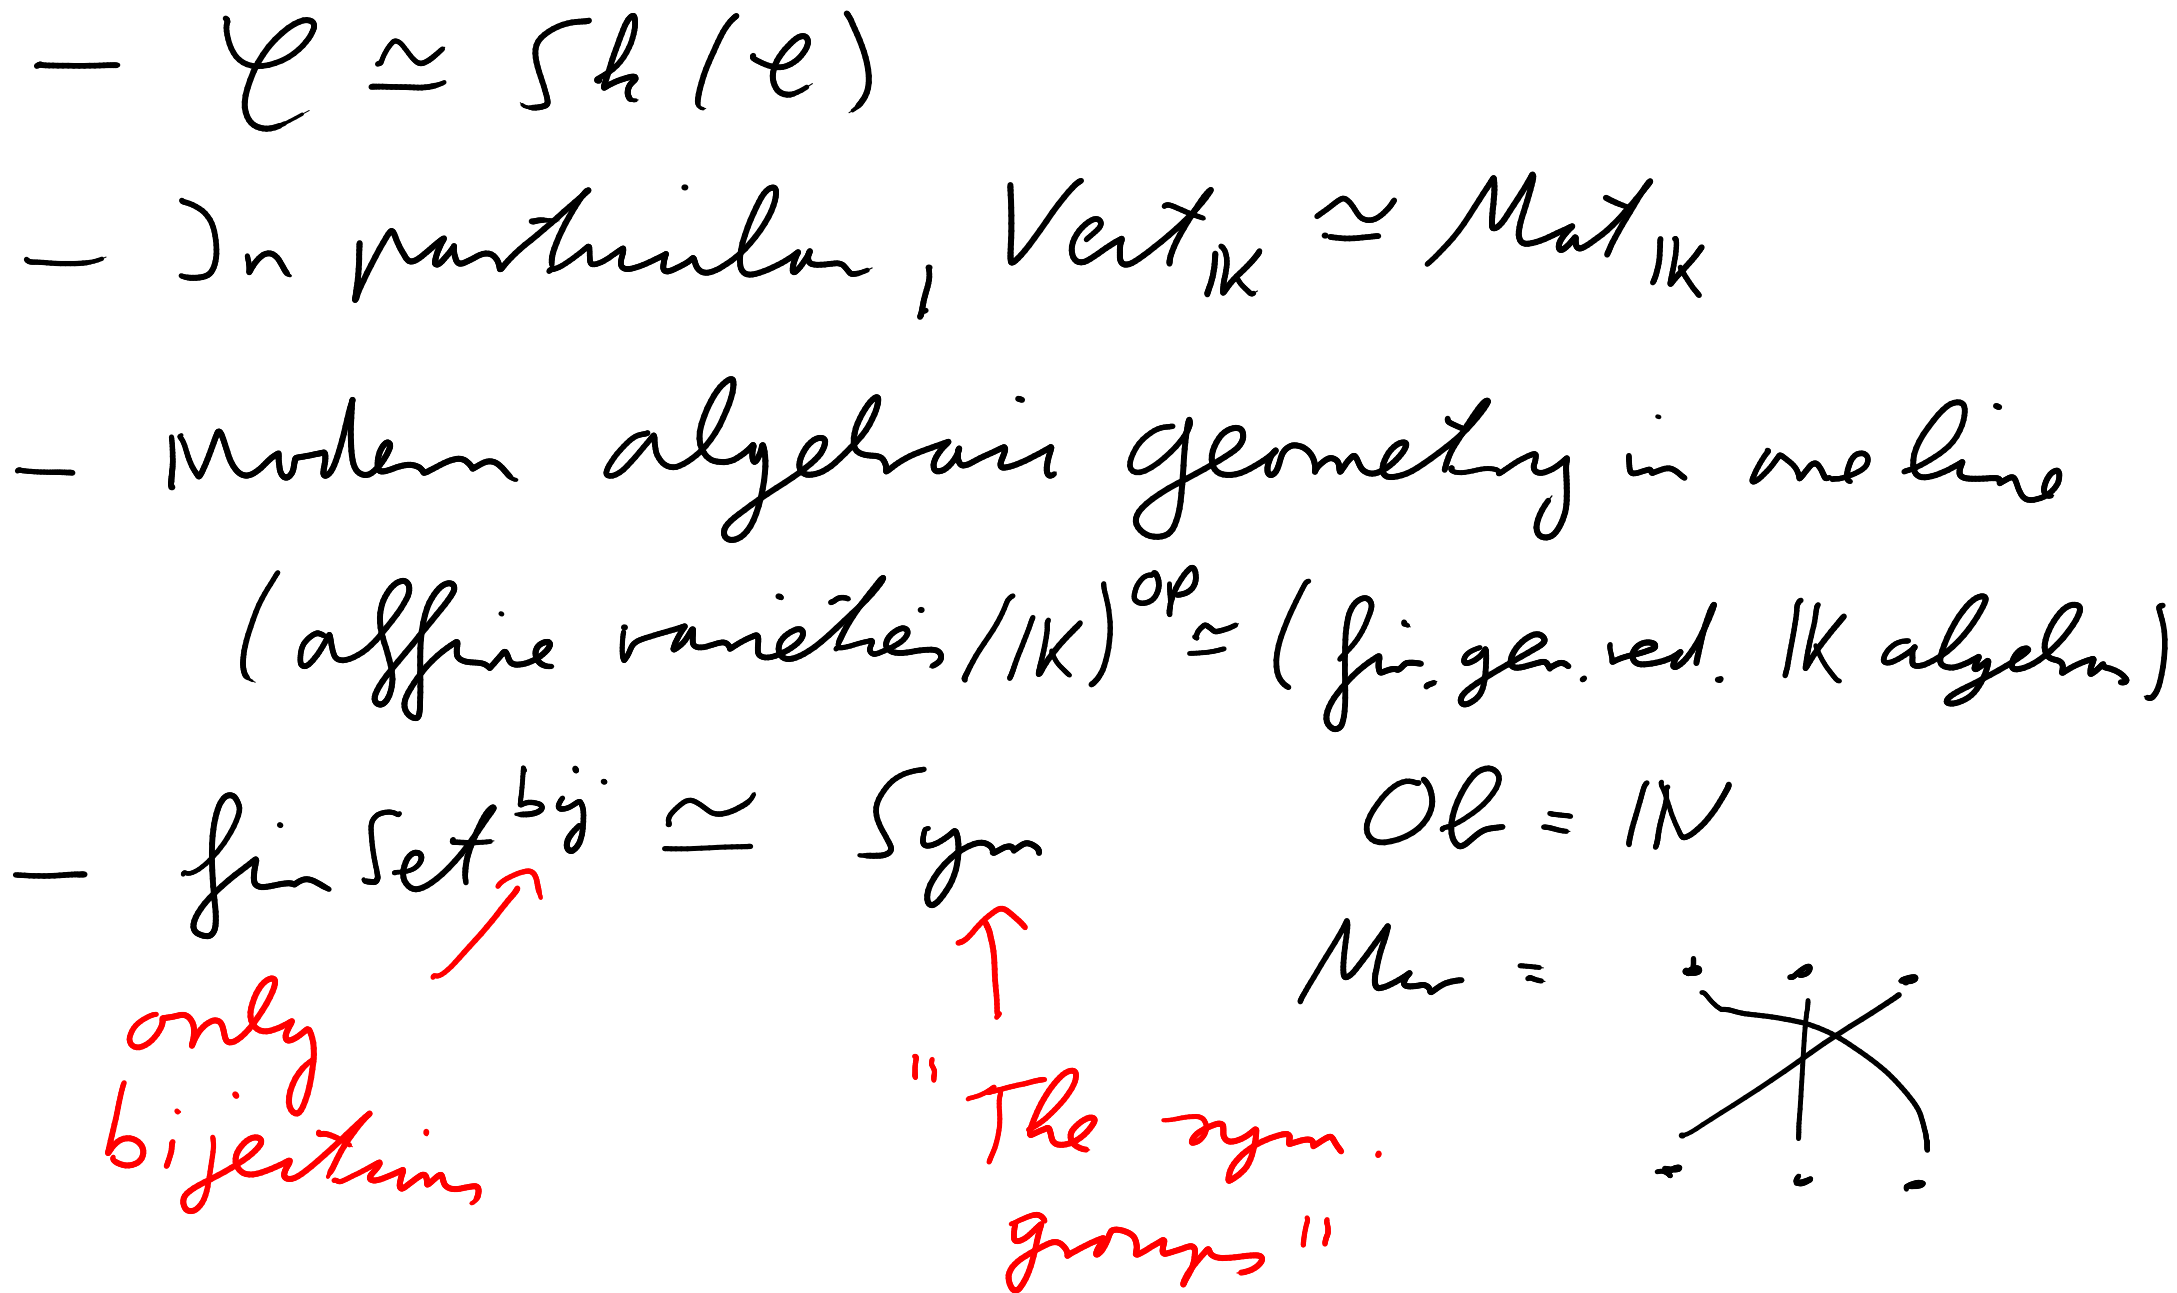 — 𝒞 ≃ Sk(𝒞)
— In particular, Vect_𝕂 ≃ Mat_𝕂
— Modern algebraic geometry in one line
(affine varieties/𝕂)^op ≃ (fin. gen. red. 𝕂 algebras)
— fin Set^bij. ≃ Sym Ob = ℕ
Mor =
only
bijections
"The sym.
groups"